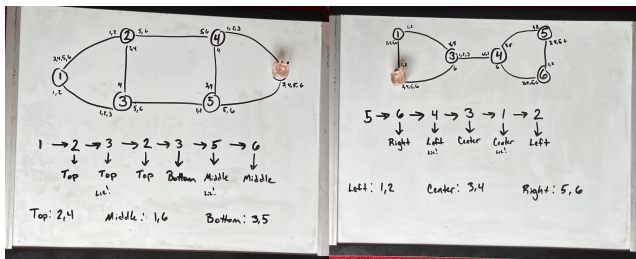 1,2
5,6
5,6
1,2,3
2
4
3,4
3,4,5,6
1
1,2
4
3
5
5,6
1,2,3
5,6
3,4,5,6
1 → 2 → 3 → 2 → 3 → 5 → 6
Top Top Top Bottom Middle Middle
Lie! Lie!
Top: 2,4 Middle: 1,6 Bottom: 3,5
1
1,2
5
3
4
6
1,2,3
6
6
3,4,5,6
5 → 6 → 4 → 3 → 1 → 2
Right Left Center Center Left
Lie! Lie!
Left: 1,2 Center: 3,4 Right: 5,6